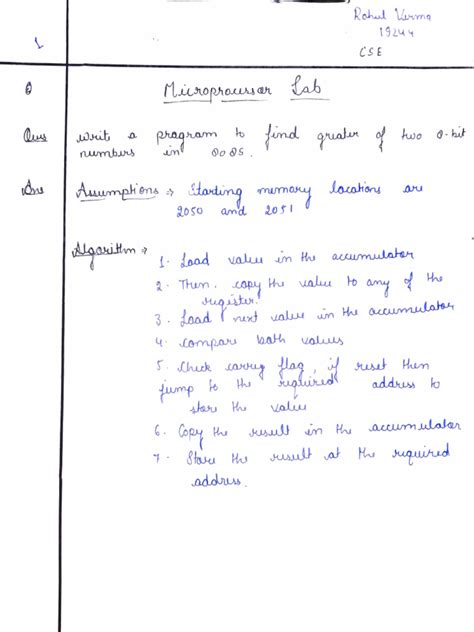 Rahul Verma
19244
CSE
1
Q
Microprocessor Lab
Ques write a program to find greater of two 8-bit
numbers in 8085.
Ans Assumptions → Starting memory locations are
2050 and 2051
Algorithm →
1. Load value in the accumulator
2. Then copy the value to any of the
register.
3. Load next value in the accumulator
4. compare both values
5. Check carry flag, if reset then
jump to the required address to
store the value
6. Copy the result in the accumulator
7. Store the result at the required
address.